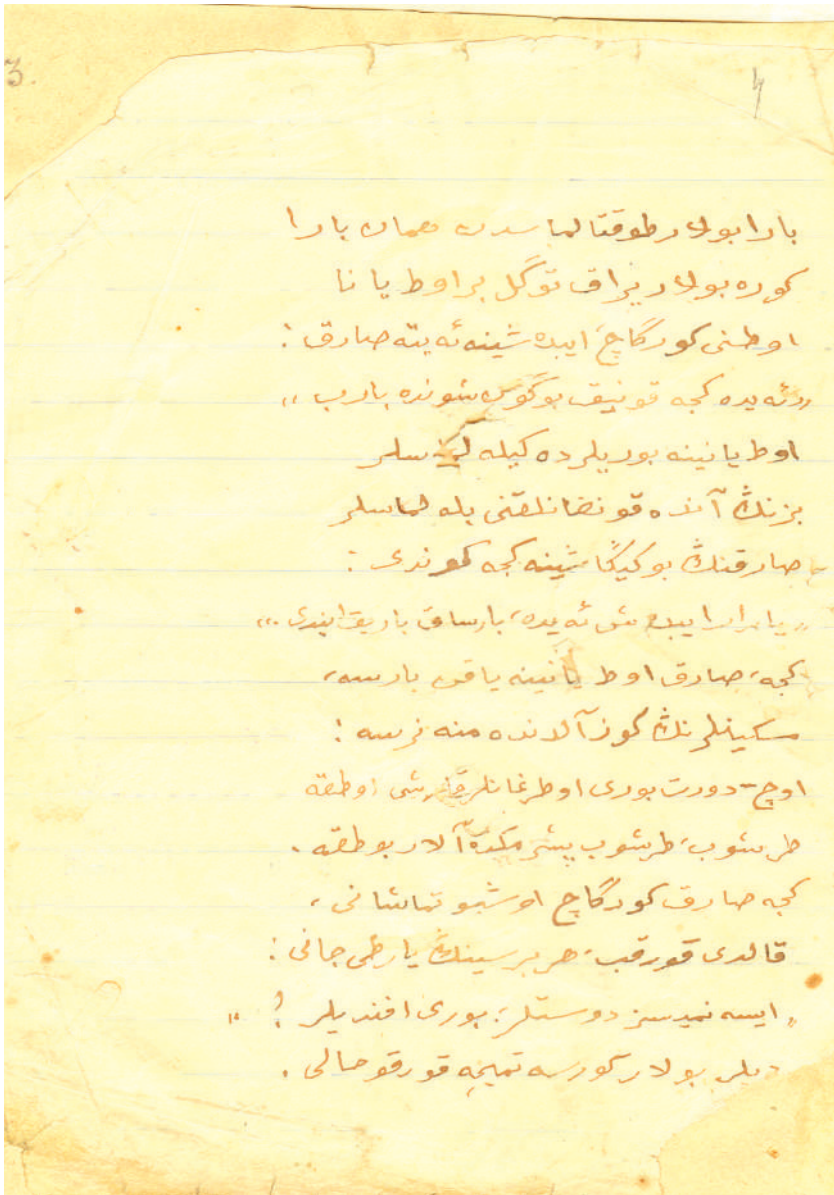 3.
4
بارا بولار طوقتالماسدن همان بارا
كوره بولار يراق توگل بر اوط يانا
اوطنی كورگاچ، ايبده‌شينه ئه‌يته صارق:
„ئه‌يده كجه قونيق بوگون شونده بارب„
اوط يانينه بوريلر ده كيله آلماسلر
بزنڭ آنده قونغانلقنی بله آلماسلر
صارقنڭ بو كيڭاشينه كجه كوندی:
„يارار ايبده‌ش ئه‌يده، بارساق باريق ايندی„
كجه، صارق اوط يانينه ياقن بارسه،
مسكينلرنڭ كوز آلدنده منه نرسه:
اوچ-دورت بوری اوطرغانلر قارشی اوطقه
طرشوب، طرشوب پشرمكده آلار بوطقه.
كجه صارق كورگاچ اوشبو تماشانی،
قالدی قورقب، هر برسينڭ يارطی جانی:
„ايسه‌نميسز دوستلر، بوری افنديلر؟„
ديلر بولار كورسه‌تميچه قورقو حالی.